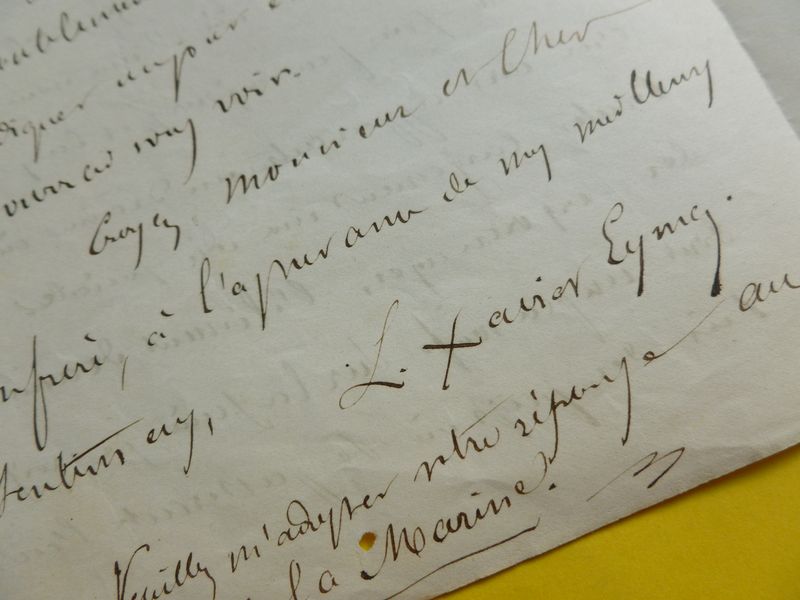 diquer un jour
pourrai vous voir.
Croyez, monsieur et cher
confrère, à l'assurance de mes meilleurs
sentiments,
L. Xavier Eyma.
Veuillez m'adresser votre réponse au
la Marine.